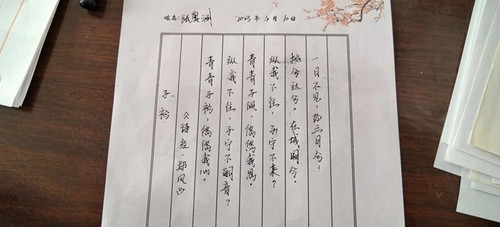 姓名:张
子衿
《诗经·郑风》
青青子衿,悠悠我心。
纵我不往,子宁不嗣音?
青青子佩,悠悠我思。
纵我不往,子宁不来?
挑兮达兮,在城阙兮。
一日不见,如三月兮!